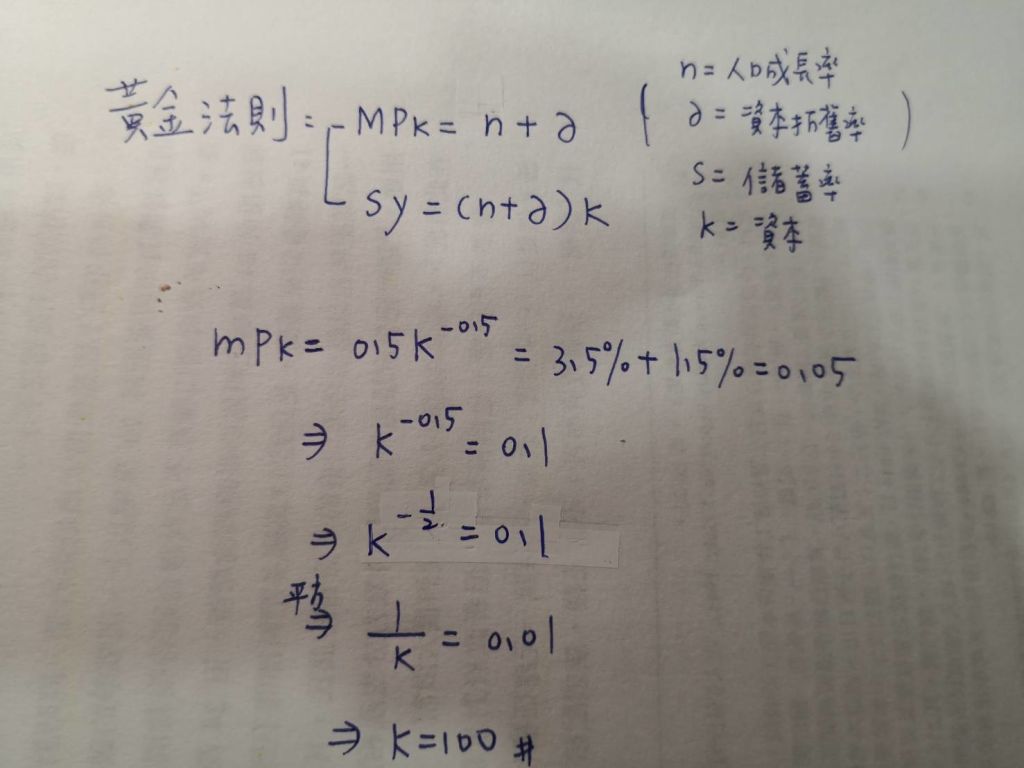 黃金法則: MPk = n + ∂
Sy = (n+∂)k
( n = 人口成長率
∂ = 資本折舊率 )
S = 儲蓄率
k = 資本
MPk = 0.5k^-0.5 = 3.5% + 1.5% = 0.05
⇒ k^-0.5 = 0.1
⇒ k^-1/2 = 0.1
平方⇒ 1/k = 0.01
⇒ k=100 #